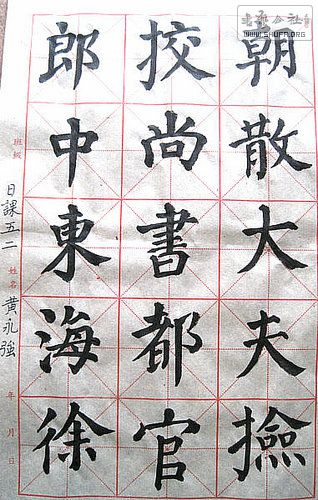 朝散大夫撿
挍尚書都官
郎中東海徐
班級 日課五二 姓名 黃永強 年 月 日
WWW.SHUFA.ORG